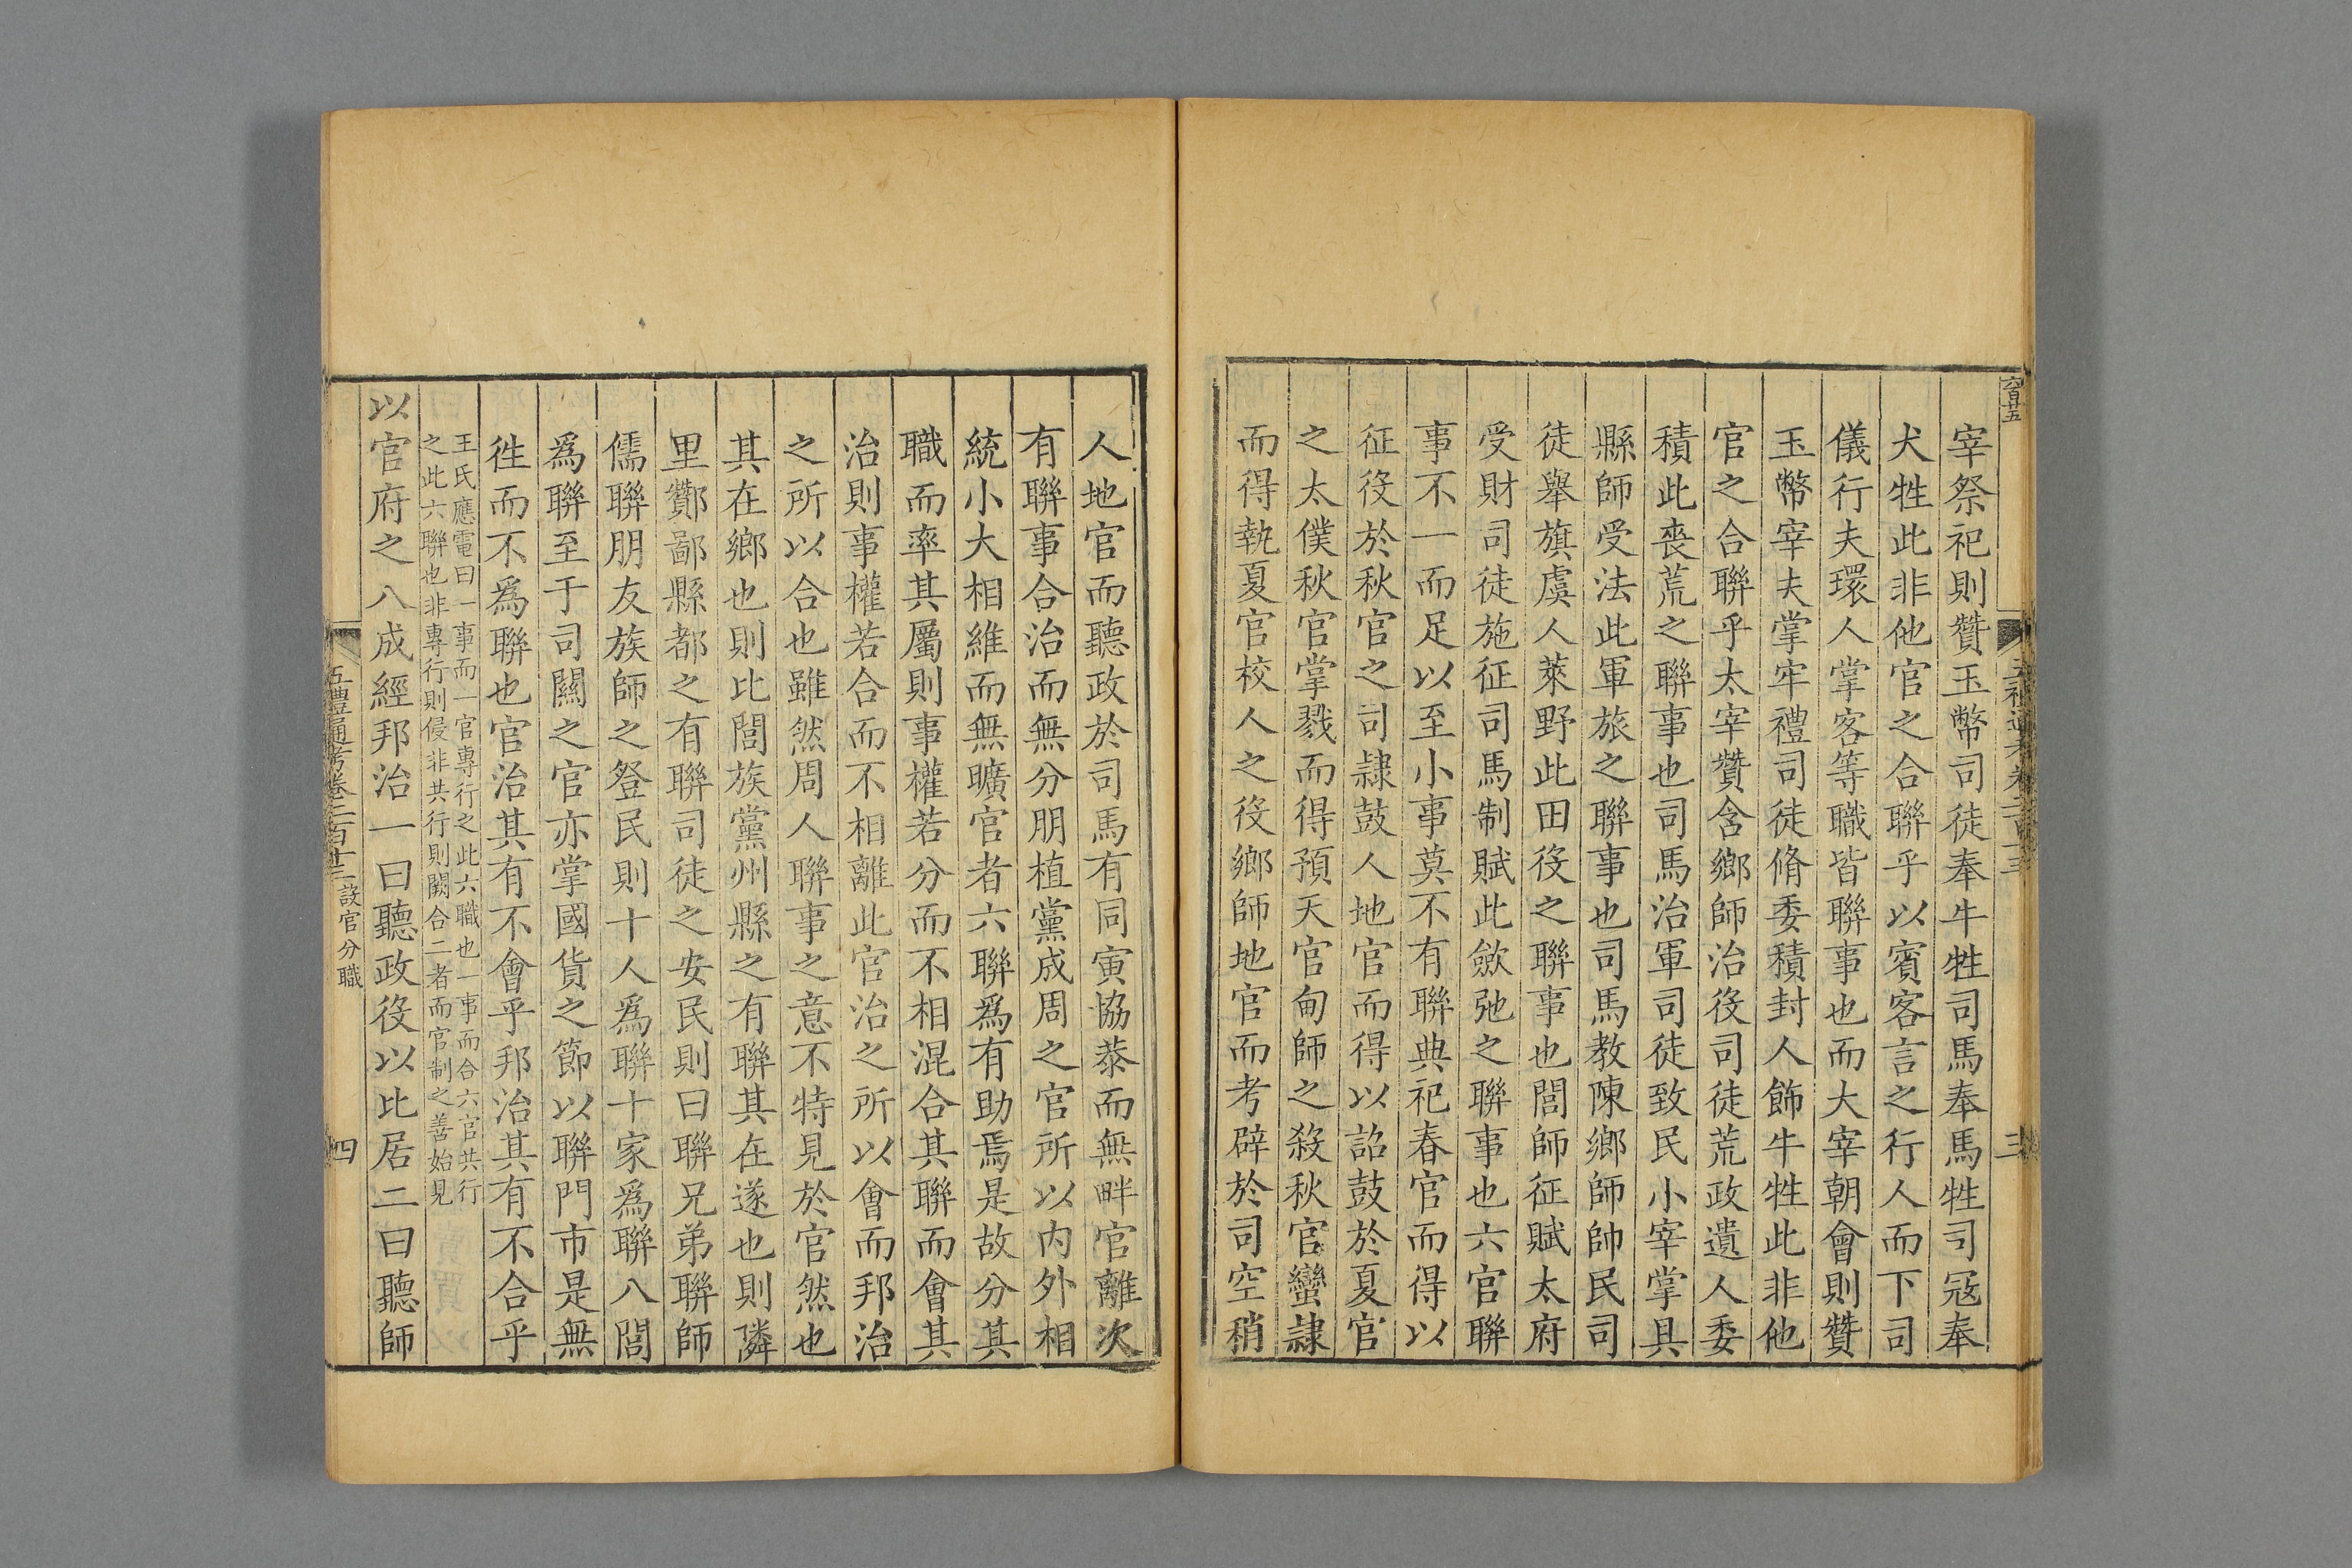 宰祭祀則贊玉幣司徒奉牛牲司馬奉馬牲司冦奉
犬牲此非他官之合聯乎以賓客言之行人而下司
儀行夫環人掌客等職皆聯事也而大宰朝會則贊
玉幣宰夫掌牢禮司徒脩委積封人飾牛牲此非他
官之合聯乎太宰贊含鄉師治役司徒荒政遺人委
積此喪荒之聯事也司馬治軍司徒致民小宰掌具
縣師受法此軍旅之聯事也司馬教陳鄉師帥民司
徒舉旗虞人萊野此田役之聯事也閭師征賦太府
受財司徒施征司馬制賦此歛弛之聯事也六官聯
事不一而足以至小事莫不有聯典祀春官而得以
征役於秋官之司隷鼓人地官而得以詔鼓於夏官
之太僕秋官掌戮而得預天官甸師之殺秋官蠻隷
而得執夏官校人之役鄉師地官而考辟於司空稍
人地官而聽政於司馬有同寅協恭而無畔官離次
有聯事合治而無分朋植黨成周之官所以内外相
統小大相維而無曠官者六聯爲有助焉是故分其
職而率其屬則事權若分而不相混合其聯而會其
治則事權若合而不相離此官治之所以會而邦治
之所以合也雖然周人聯事之意不特見於官然也
其在鄉也則比閭族黨州縣之有聯其在遂也則隣
里酇鄙縣都之有聯司徒之安民則曰聯兄弟聯師
儒聯朋友族師之登民則十人爲聯十家爲聯八閭
爲聯至于司關之官亦掌國貨之節以聯門市是無
徃而不爲聯也官治其有不會乎邦治其有不合乎
王氏應電曰一事而一官專行之此六職也一事而合六官共行
之此六聯也非專行則侵非共行則闕合二者而官制之善始見
以官府之八成經邦治一曰聽政役以比居二曰聽師
五禮通考卷二百十三 設官分職
四